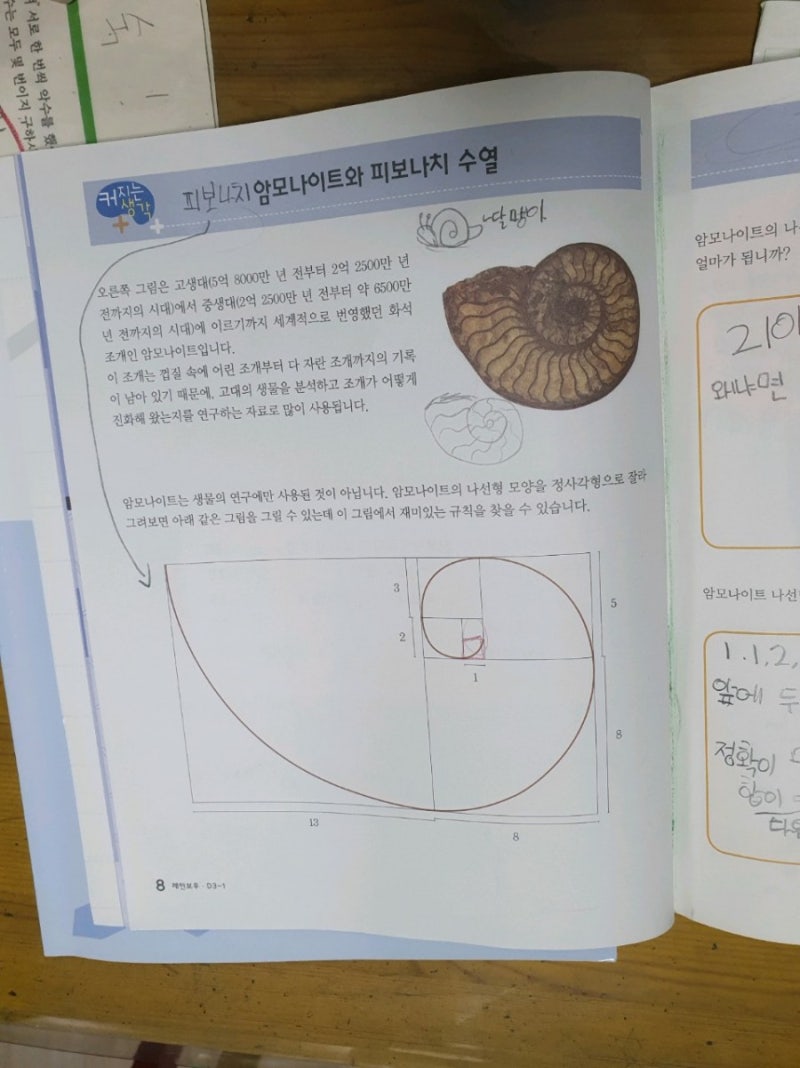 서로 한 번씩 악수를 했
수는 모두 몇 번이지 구하시
커지는
생각
피보나치 암모나이트와 피보나치 수열
달팽이
오른쪽 그림은 고생대(5억 8000만 년 전부터 2억 2500만 년
전까지의 시대)에서 중생대(2억 2500만 년 전부터 약 6500만
년 전까지의 시대)에 이르기까지 세계적으로 번영했던 화석
조개인 암모나이트입니다.
이 조개는 껍질 속에 어린 조개부터 다 자란 조개까지의 기록
이 남아 있기 때문에, 고대의 생물을 분석하고 조개가 어떻게
진화해 왔는지를 연구하는 자료로 많이 사용됩니다.
암모나이트는 생물의 연구에만 사용된 것이 아닙니다. 암모나이트의 나선형 모양을 정사각형으로 잘라
그려보면 아래 같은 그림을 그릴 수 있는데 이 그림에서 재미있는 규칙을 찾을 수 있습니다.
3
5
2
1
8
13
8
8 레인보우·D3-1
암모나이트의 나
얼마가 됩니까?
왜냐면
암모나이트 나선
1.1.2,
앞에 두
정확이
합이
다음